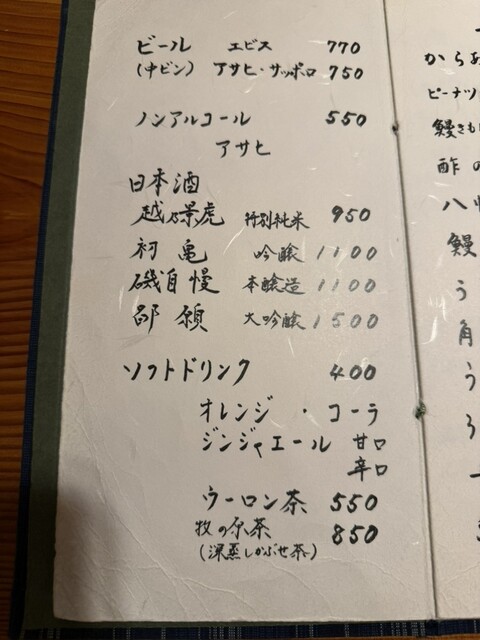 ビール エビス 770
(中ビン) アサヒ・サッポロ 750
ノンアルコール 550
アサヒ
日本酒
越乃景虎 特別純米 950
初亀 吟醸 1100
磯自慢 本醸造 1100
大吟醸 1500
ソフトドリンク 400
オレンジ ・ コーラ
ジンジャエール 甘口
辛口
ウーロン茶 550
牧の原茶 850
(深蒸しかぶせ茶)
からあ
ピーナツ
鰻きも
酢の
八
鰻
う
角
う